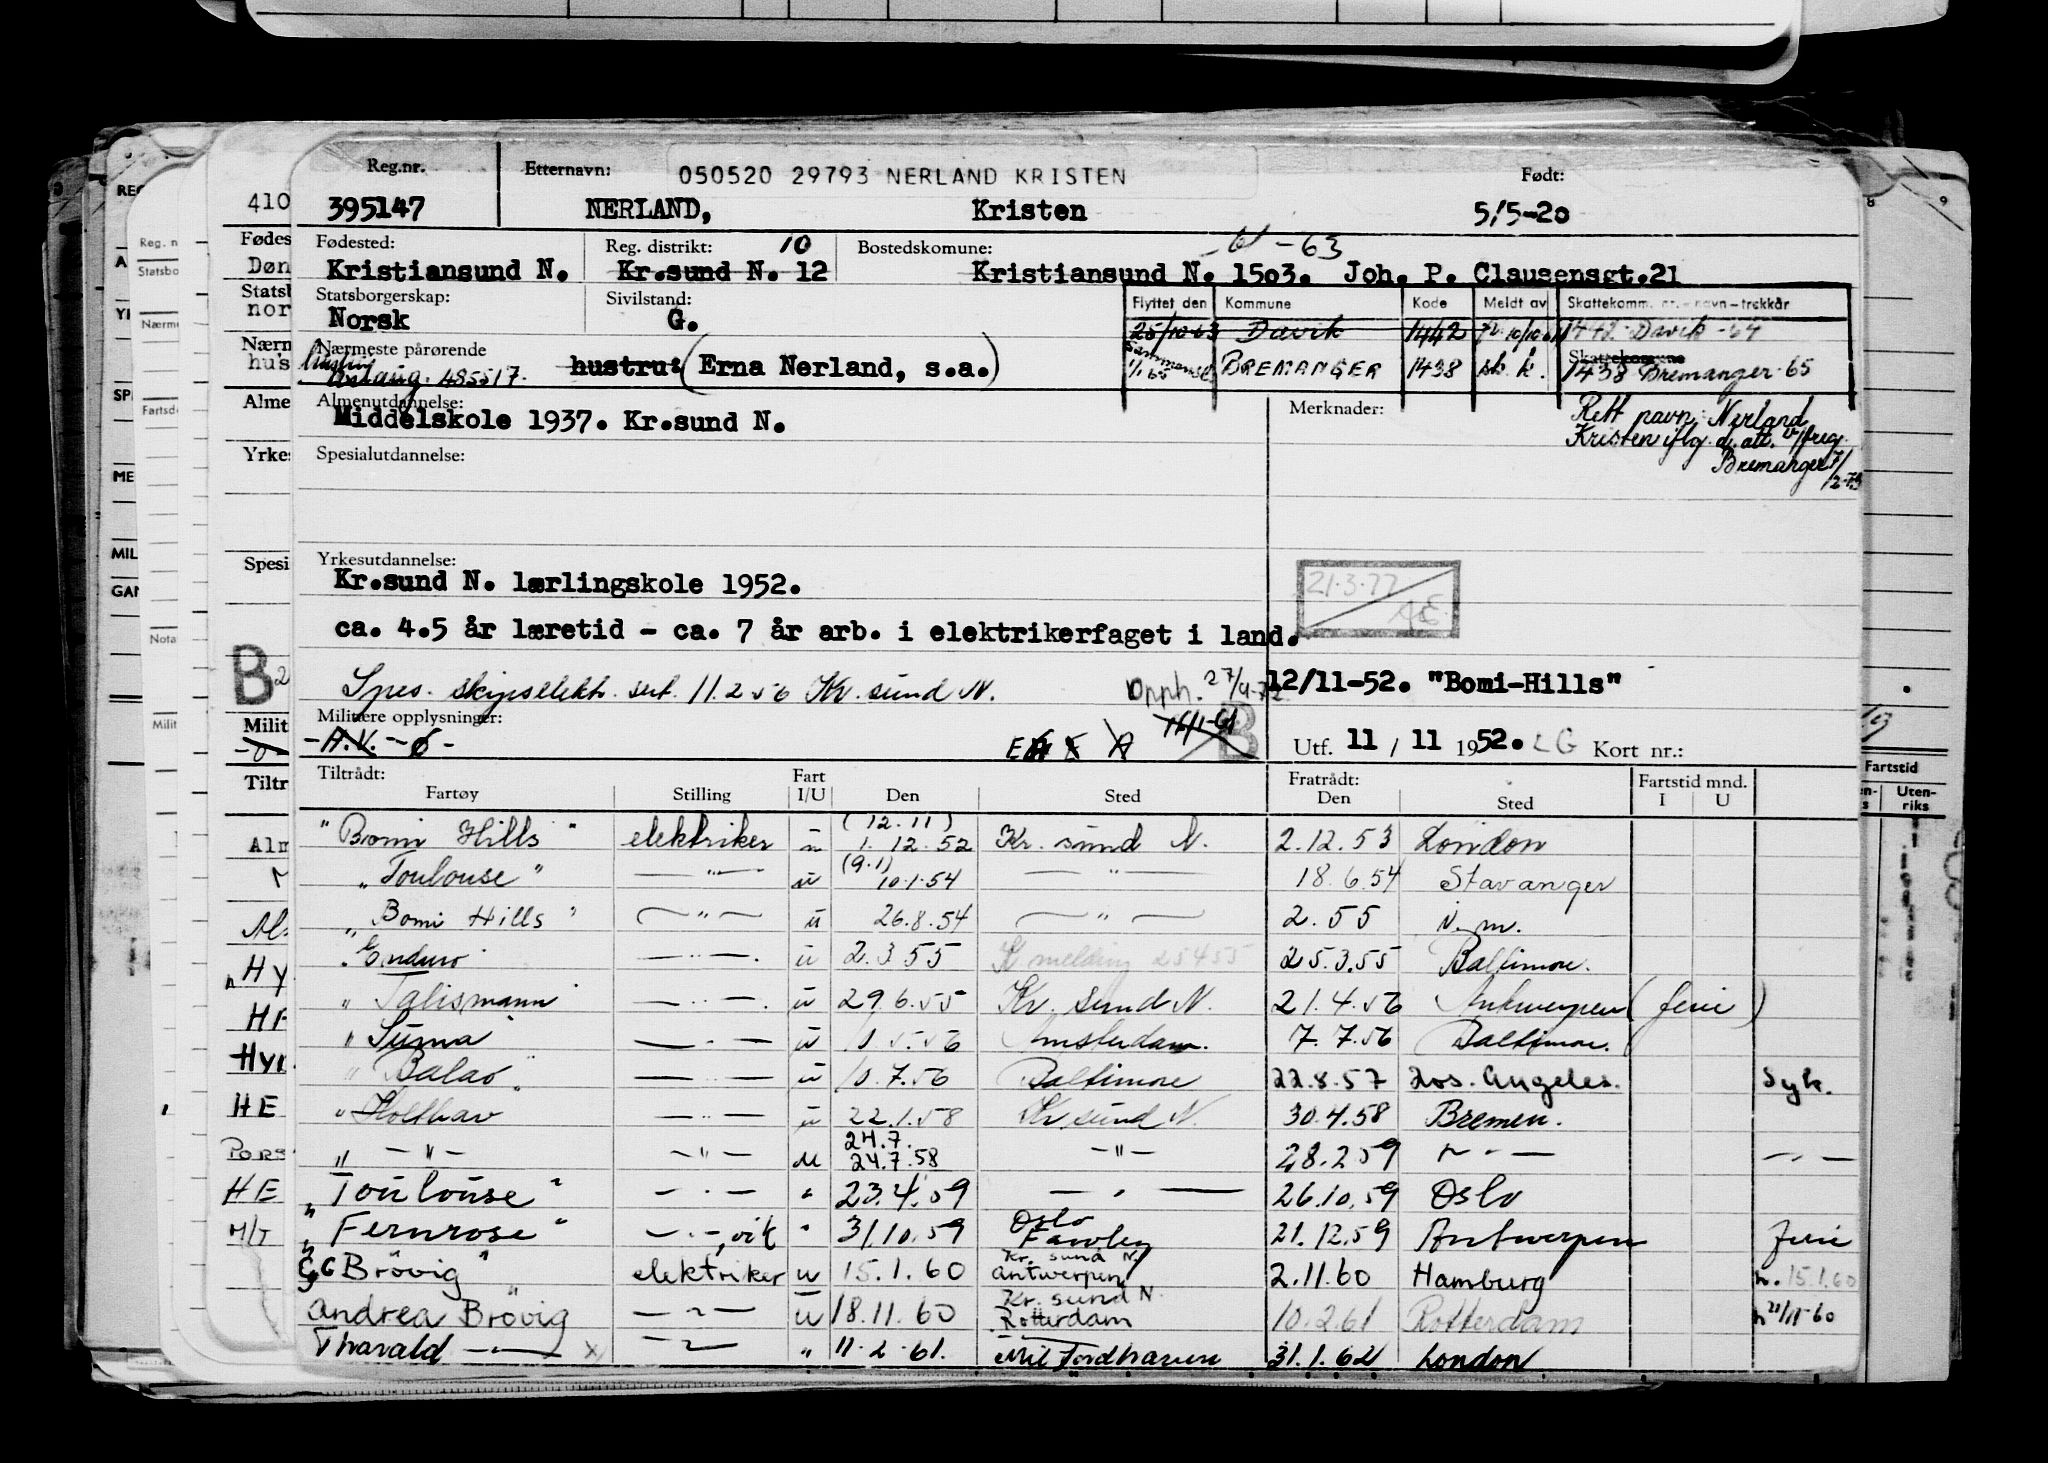 Reg.nr. Etternavn: 050520 29793 NERLAND KRISTEN Født:
410 395147 NERLAND, Kristen 5/5-20
Fødested: Reg. distrikt: 10 Bostedskomune: -61-63
Kristiansund N. Kr.sund N. 12 Kristiansund N. 1503. Joh. P. Clausensgt.21
Statsborgerskap: Sivilstand: Flyttet den Kommune Kode Meldt av Skattekomm. nr.-navn-trekkår
Norsk G. 25/10-63 Davik 1442 1442 Davik -64
Nærmeste pårørende Skattekomune
Aslaug. 485517. hustru: (Erna Nerland, s.a.) 1/1 65 BREMANGER 1438 sk.k. 1438 Bremanger-65
Almenutdannelse: Merknader:
Middelskole 1937. Kr.sund N.
Rett navn: Nerland
Kristen iflg. d. att. v/freg.
Bremanger
Spesialutdannelse:
Yrkesutdannelse:
Kr.sund N. lærlingskole 1952. 21.3.77
ca. 4.5 år læretid - ca. 7 år arb. i elektrikerfaget i land.
Spes. skipselekt. sert. 11.2.56 Kr. sund N. Opph. 27/4-72 12/11-52. "Bomi-Hills"
Militære opplysninger: 16/1-61 B
-A.V.-6- Utf. 11 / 11 1952. LG Kort nr.:
Tiltrådt: Fart Fratrådt: Fartstid mnd.
Fartøy Stilling I/U Den Sted Den Sted I U
"Bomi Hills" elektriker u (12.11) 1.12.52 Kr. sund N. 2.12.53 London
"Toulouse" — " — u (9.1) 10.1.54 — " — 18.6.54 Stavanger
"Bomi Hills" — " — u 26.8.54 — " — 2.55 N.m.
"Enduro — " —. u 2.3.55 K melding 25455 25.3.55 Baltimore.
"Talismann" — " —. u 29.6.55 Kr. sund N. 21.4.56 Antwerpen (ferie)
"Suma" — " — u 1.5.56 Amsterdam. 7.7.56 Baltimore.
"Balao" — " — u 10.7.56 Baltimore 22.8.57 Los. Angeles. Syk.
"Holthav — " — u 22.1.58 Kr sund N. 30.4.58 Bremen.
" — " — — " — u 24.7. 24.7.58 — " — 28.2.59 — " — — " —
"Toulouse" — " — " 23.4.59 — " — 26.10.59 Oslo
"Fernrose" — " —, vik " 31.10.59 Oslo Fawley 21.12.59 Antwerpen Ferie
"G C Brøvig" elektriker u 15.1.60 Kr. sund N. Antwerpen 2.11.60 Hamburg n. 15.1.60
Andrea Brøvig — " — u 18.11.60 Kr. sund N. Rotterdam 10.2.61 Rotterdam n 21/11-60
Thorvald — x — " — " 11.2.61. Milfordhaven 31.1.62 London
Fødes
Døn
Statsb
nor
Nærm
hus
Alme
Yrkes
Spesi
B
Milit
Tiltr
Alm
"Hy
HE
PORS
HE
M/T
Reg. n
Statsbo
Nærm
Fartsd
Nota
Milit
REG
SP
ME
MIL
GAN
8 9
Fartstid
Uten-
riks